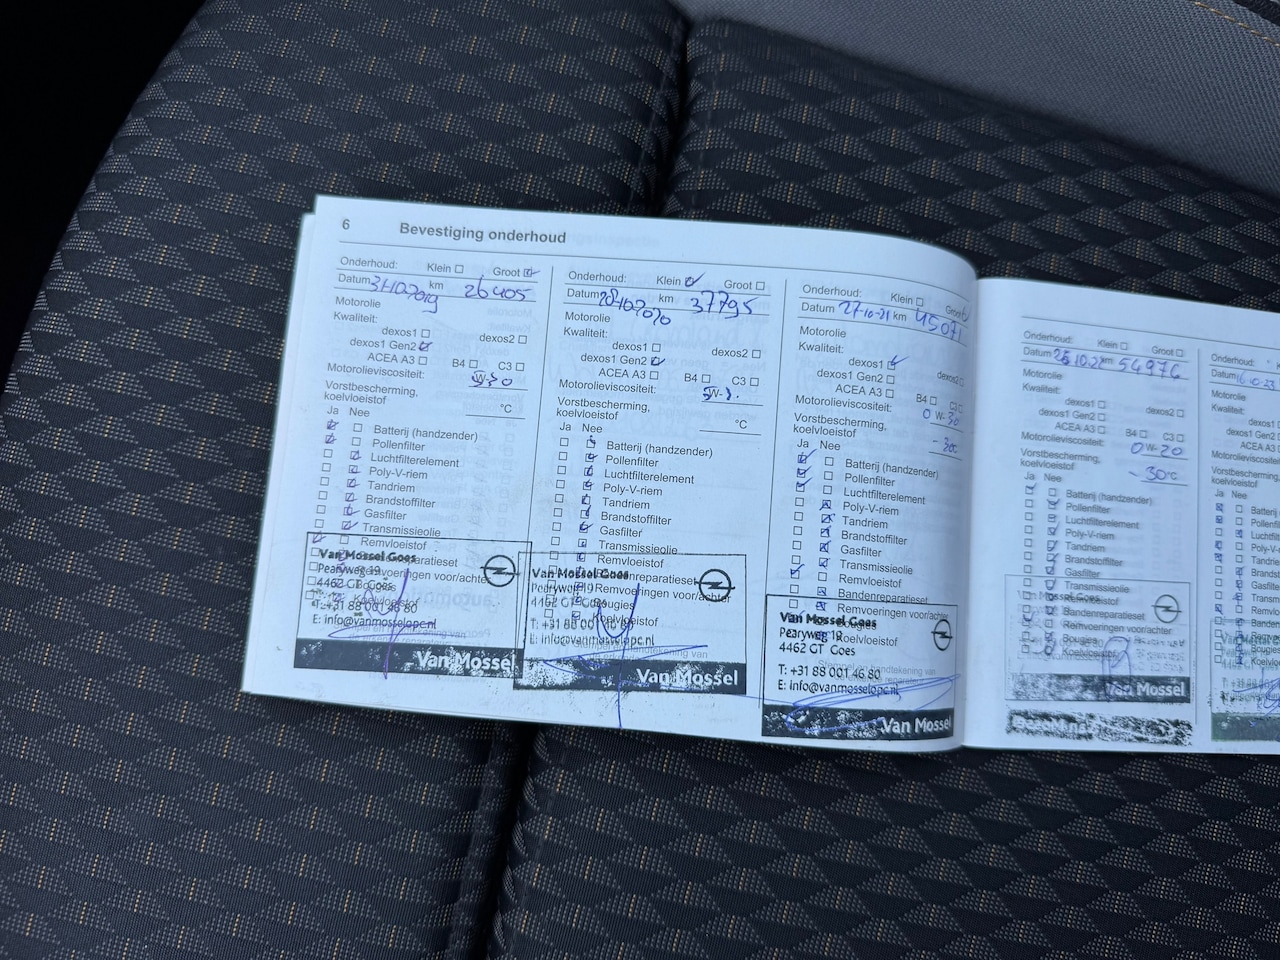 6 Bevestiging onderhoud
Onderhoud: Klein Groot
Datum 31-10-2019 km 26405
Motorolie
Kwaliteit:
dexos1 dexos2
dexos1 Gen2
ACEA A3 B4 C3
Motorolieviscositeit:
Vorstbescherming,
koelvloeistof °C
Ja Nee
Batterij (handzender)
Pollenfilter
Luchtfilterelement
Poly-V-riem
Tandriem
Brandstoffilter
Gasfilter
Transmissieolie
Remvloeistof
Van Mossel Goes
Pearyweg 19
4462 GT Goes
T: +31 88 001 46 80
E: info@vanmosselopel.nl
Van Mossel
Onderhoud: Klein Groot
Datum km 37795
Motorolie
Kwaliteit:
dexos1 dexos2
dexos1 Gen2
ACEA A3 B4 C3
Motorolieviscositeit:
Vorstbescherming,
koelvloeistof °C
Ja Nee
Batterij (handzender)
Pollenfilter
Luchtfilterelement
Poly-V-riem
Tandriem
Brandstoffilter
Gasfilter
Transmissieolie
Remvloeistof
Bandenreparatieset
Remvoeringen voor/achter
Bougies
Koelvloeistof
Van Mossel Goes
Pearyweg 19
4462 GT Goes
T: +31 88 001 46 80
E: info@vanmosselopel.nl
Van Mossel
Onderhoud: Klein Groot
Datum 27-10-21 km 45071
Motorolie
Kwaliteit:
dexos1
dexos1 Gen2 dexos2
ACEA A3 B4 C3
Motorolieviscositeit: 0 W-30
Vorstbescherming,
koelvloeistof -30c
Ja Nee
Batterij (handzender)
Pollenfilter
Luchtfilterelement
Poly-V-riem
Tandriem
Brandstoffilter
Gasfilter
Transmissieolie
Remvloeistof
Bandenreparatieset
Remvoeringen voor/achter
Bougies
Koelvloeistof
Van Mossel Goes
Pearyweg 19
4462 GT Goes
T: +31 88 001 46 80
E: info@vanmosselopel.nl
Van Mossel
Onderhoud: Klein Groot
Datum km 54976
Motorolie
Kwaliteit:
dexos1 dexos2
dexos1 Gen2
ACEA A3 B4 C3
Motorolieviscositeit: 0 W-20
Vorstbescherming,
koelvloeistof -30c
Ja Nee
Batterij (handzender)
Pollenfilter
Luchtfilterelement
Poly-V-riem
Tandriem
Brandstoffilter
Gasfilter
Transmissieolie
Bandenreparatieset
Remvoeringen voor/achter
Bougies
Koelvloeistof
Van Mossel
Onderhoud:
Datum 16-10-23
Motorolie
Kwaliteit:
dexos1
dexos1 Gen2
ACEA A3
Motorolieviscositeit:
Vorstbescherming,
koelvloeistof
Ja Nee